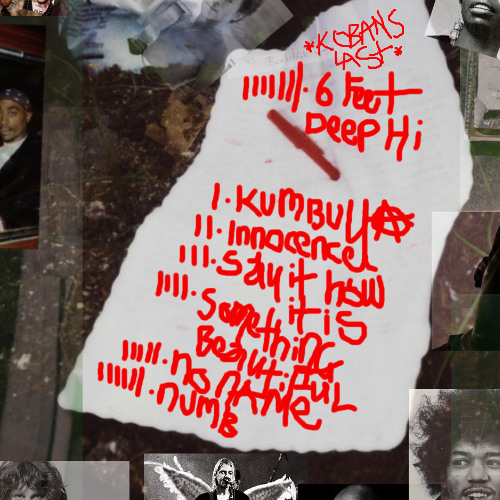 *KOBANS
LAST*
IIIIIII. 6 feet
DEEP Hi
I. KUMBUYA
II. Innocence
III. Say it how
it is
IIII. Something
Beautiful
IIIII. no nAME
IIIIII. numB